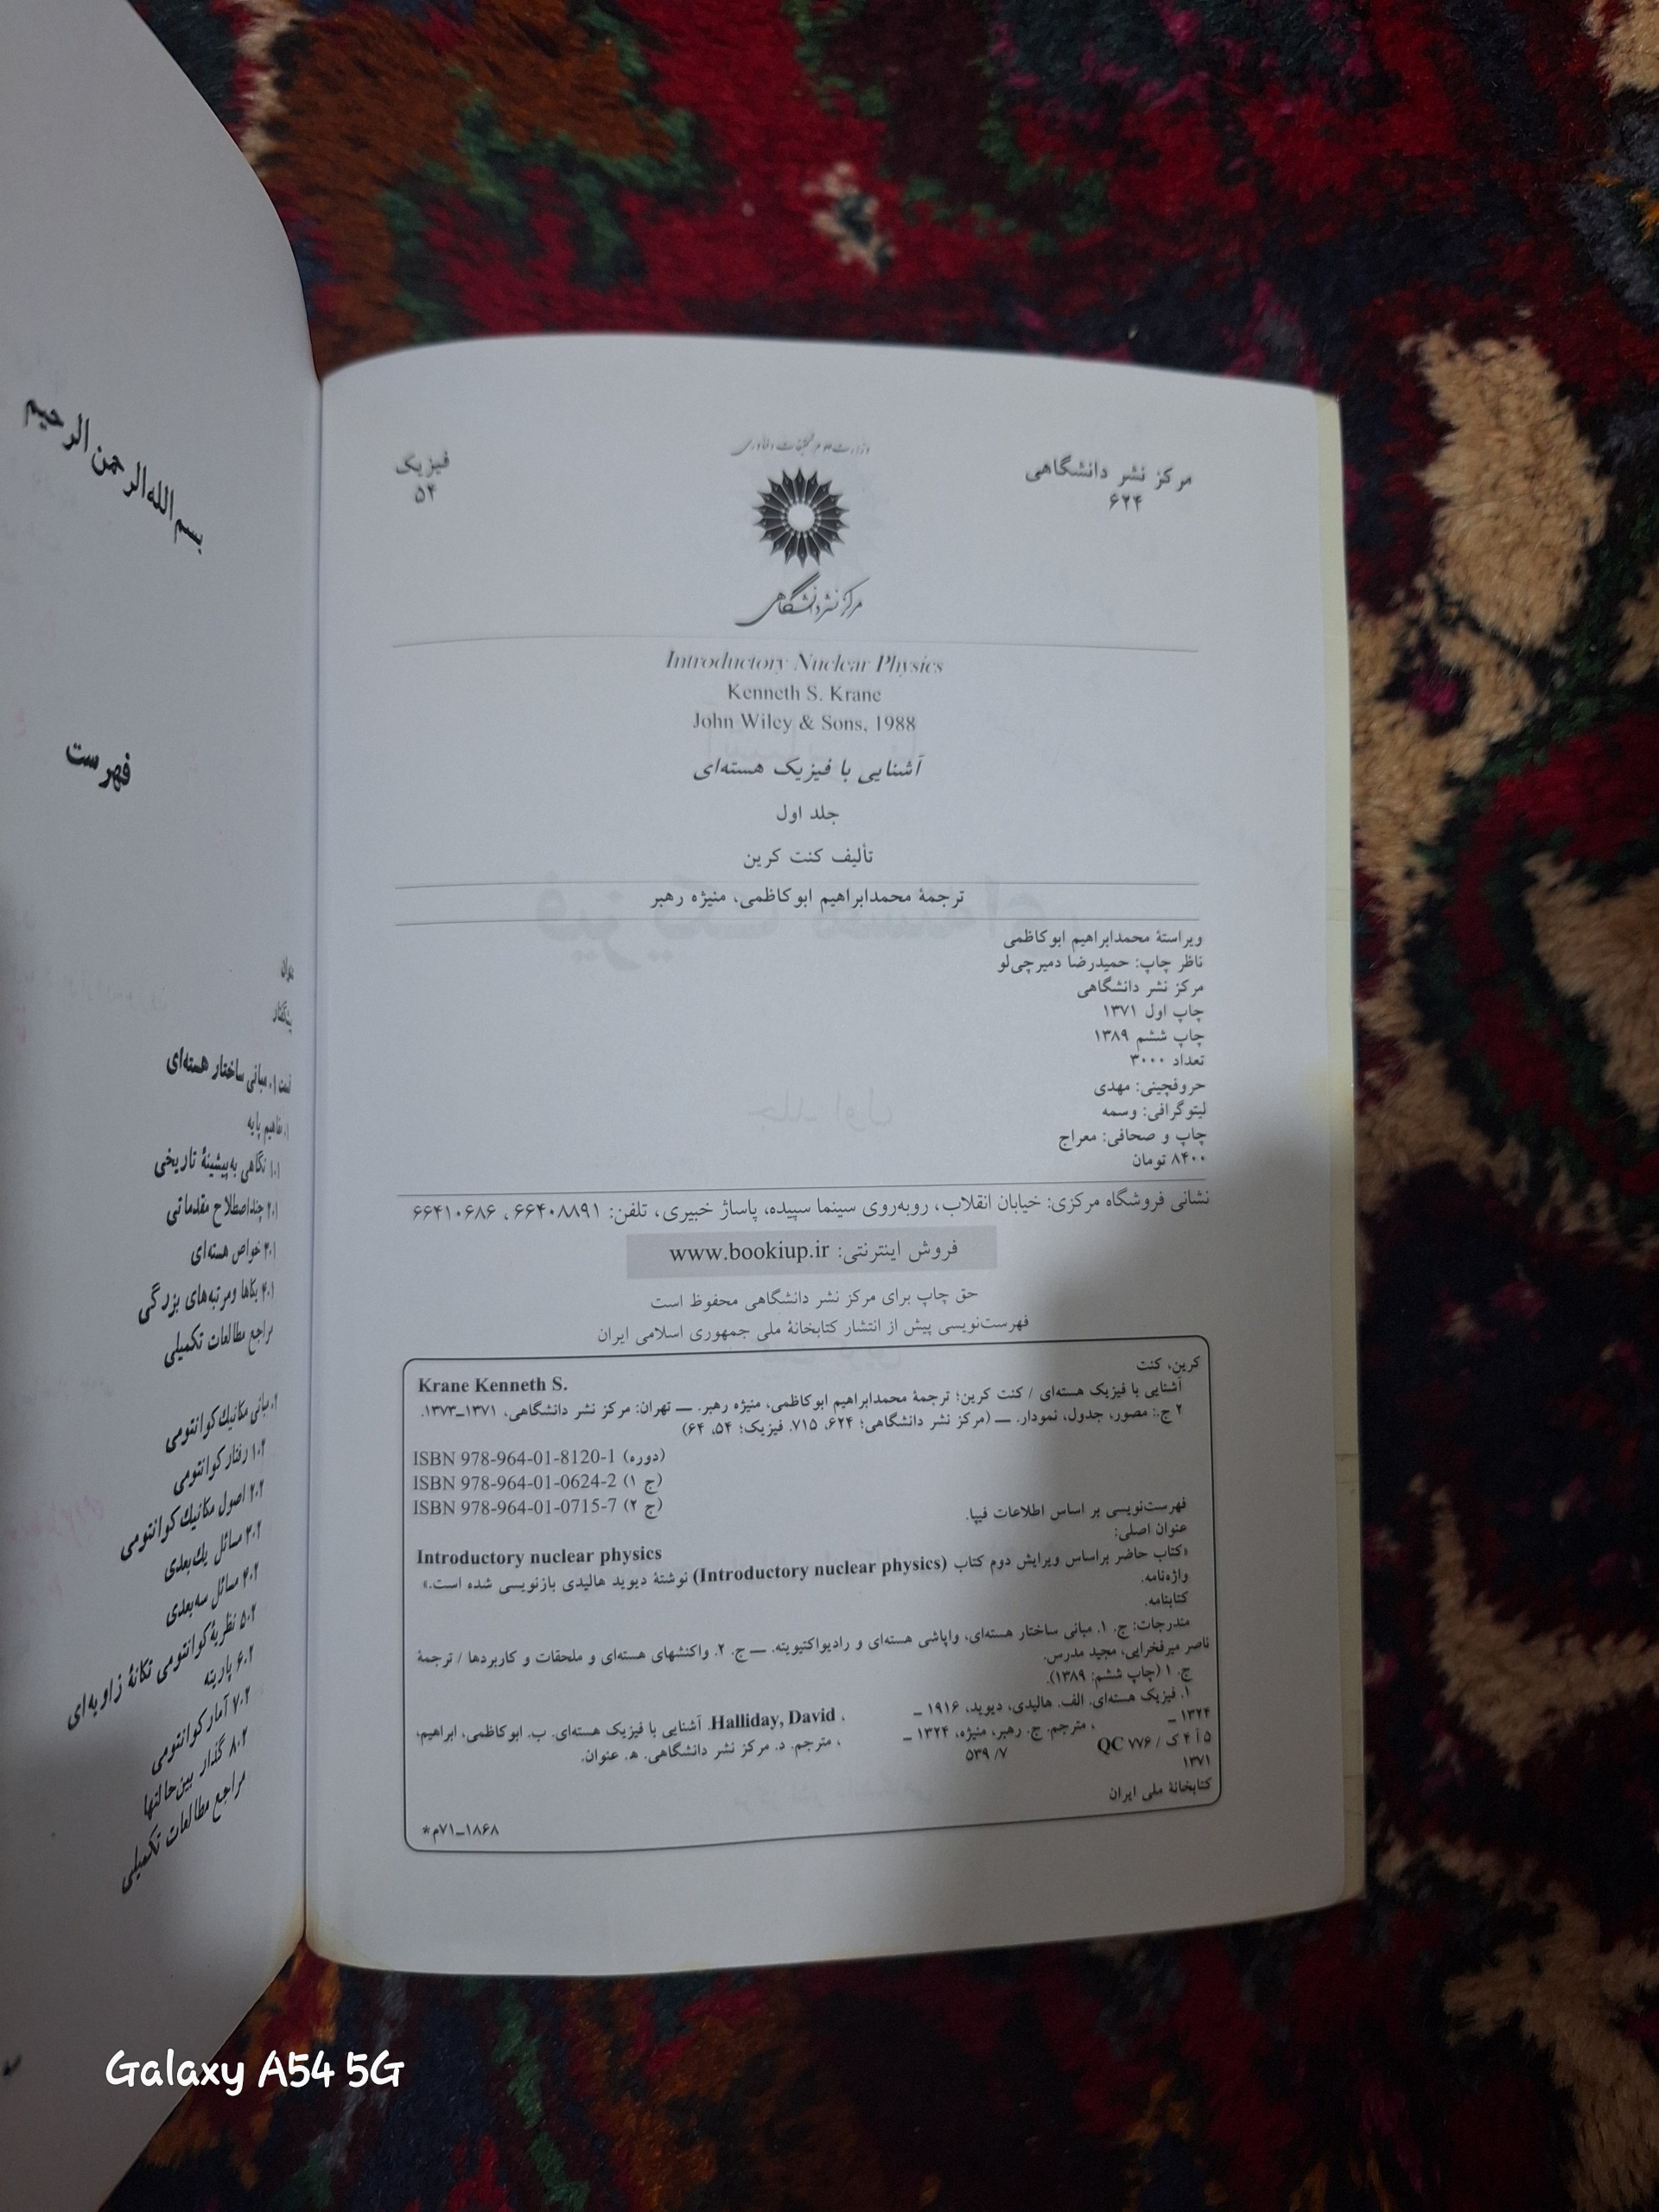 مرکز نشر دانشگاهی
۶۲۴
وزارت علوم، تحقیقات و فناوری
مرکز نشر دانشگاهی
فیزیک
۵۴
Introductory Nuclear Physics
Kenneth S. Krane
John Wiley & Sons, 1988
آشنایی با فیزیک هسته‌ای
جلد اول
تألیف کنت کرین
ترجمهٔ محمدابراهیم ابوکاظمی، منیژه رهبر
ویراستهٔ محمدابراهیم ابوکاظمی
ناظر چاپ: حمیدرضا دمیرچی‌لو
مرکز نشر دانشگاهی
چاپ اول ۱۳۷۱
چاپ ششم ۱۳۸۹
تعداد ۳۰۰۰
حروفچینی: مهدی
لیتوگرافی: وسمه
چاپ و صحافی: معراج
۸۴۰۰ تومان
نشانی فروشگاه مرکزی: خیابان انقلاب، روبه‌روی سینما سپیده، پاساژ خبیری، تلفن: ۶۶۴۰۸۸۹۱، ۶۶۴۱۰۶۸۶
فروش اینترنتی: www.bookiup.ir
حق چاپ برای مرکز نشر دانشگاهی محفوظ است
فهرست‌نویسی پیش از انتشار کتابخانهٔ ملی جمهوری اسلامی ایران
کرین، کنت
Krane Kenneth S.
آشنایی با فیزیک هسته‌ای / کنت کرین؛ ترجمهٔ محمدابراهیم ابوکاظمی، منیژه رهبر. ــ تهران: مرکز نشر دانشگاهی، ۱۳۷۱ـ۱۳۷۳.
۲ ج.: مصور، جدول، نمودار. ــ (مرکز نشر دانشگاهی؛ ۶۲۴، ۷۱۵. فیزیک؛ ۵۴، ۶۴)
ISBN 978-964-01-8120-1 (دوره)
ISBN 978-964-01-0624-2 (ج ۱)
ISBN 978-964-01-0715-7 (ج ۲)
فهرست‌نویسی بر اساس اطلاعات فیپا.
عنوان اصلی:
Introductory nuclear physics
«کتاب حاضر براساس ویرایش دوم کتاب (Introductory nuclear physics) نوشتهٔ دیوید هالیدی بازنویسی شده است.»
واژه‌نامه.
کتابنامه.
مندرجات: ج. ۱. مبانی ساختار هسته‌ای، واپاشی هسته‌ای و رادیواکتیویته. ــ ج. ۲. واکنشهای هسته‌ای و ملحقات و کاربردها / ترجمهٔ
ناصر میرفخرایی، مجید مدرس.
ج. ۱ (چاپ ششم: ۱۳۸۹).
۱. فیزیک هسته‌ای. الف. هالیدی، دیوید، ۱۹۱۶ ـ
، Halliday, David. آشنایی با فیزیک هسته‌ای. ب. ابوکاظمی، ابراهیم،
۱۳۲۴ ـ ، مترجم. ج. رهبر، منیژه، ۱۳۲۴ ـ ، مترجم. د. مرکز نشر دانشگاهی. ه. عنوان.
۵ آ ۴ ک / QC ۷۷۶
۵۳۹ /۷
۱۳۷۱
کتابخانهٔ ملی ایران
۱۸۶۸ـ۷۱م*
بسم الله الرحمن الرحیم
فهرست
مبانی ساختار هسته‌ای
مفاهیم پایه
۱.۱ نگاهی به پیشینهٔ تاریخی
۲.۱ چند اصطلاح مقدماتی
۳.۱ خواص هسته‌ای
۴.۱ یکاها و مرتبه‌های بزرگی
مراجع مطالعات تکمیلی
۲. مبانی مکانیک کوانتومی
۱.۲ رفتار کوانتومی
۲.۲ اصول مکانیک کوانتومی
۳.۲ مسائل یک بعدی
۴.۲ مسائل سه بعدی
۵.۲ نظریهٔ کوانتومی تکانهٔ زاویه‌ای
۶.۲ پاریته
۷.۲ آمار کوانتومی
۸.۲ گذار بین حالتها
مراجع مطالعات تکمیلی
Galaxy A54 5G